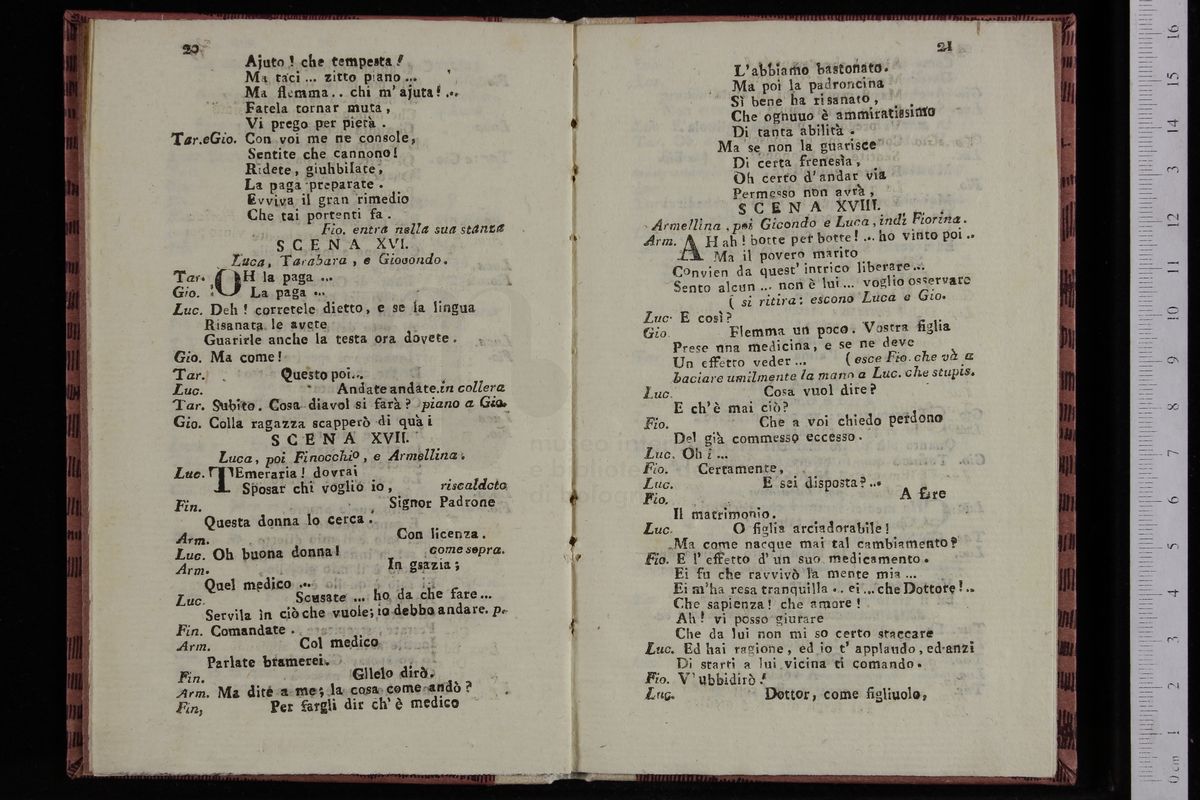 20
Ajuto ! che tempesta !
Ma taci ... zitto piano ...
Ma flemma .. chi m'ajuta! ...
Fatela tornar muta ,
Vi prego per pierà .
Tar.eGio. Con voi me ne console,
Sentite che cannono!
Ridete, giuhbilate,
La paga preparate .
Evviva il gran rimedio
Che tai portenti fa .
Fio. entra nella sua stanza
SCENA XVI.
Luca, Tarabara , e Giocondo.
Tar. OH la paga ...
Gio. La paga ...
Luc. Deh ! corretele dietto, e se la lingua
Risanata le avete
Guarirle anche la testa ora dovete .
Gio. Ma come!
Tar. Questo poi...
Luc. Andate andate.in collera
Tar. Subito. Cosa diavol si farà? piano a Gio.
Gio. Colla ragazza scapperò di quà i
SCENA XVII.
Luca, poi Finocchio, e Armellina.
Luc. TEmeraria ! dovrai
Sposar chi voglio io , riscaldato
Fin. Signor Padrone
Questa donna lo cerca .
Arm. Con licenza .
Luc. Oh buona donna! come sopra.
Arm. In gsazia ;
Quel medico ...
Luc. Scusate ... ho da che fare ...
Servila in ciò che vuole; io debbo andare. p.
Fin. Comandate .
Arm. Col medico
Parlate bramerei.
Fin. Glielo dirò.
Arm. Ma dite a me; la cosa come andò ?
Fin, Per fargli dir ch'è medico
21
L'abbiamo bastonato.
Ma poi la padroncina
Sì bene ha risanato ,
Che ognuuo è ammiratissimo
Di tanta abilità .
Ma se non la guarisce
Di certa frenesìa ,
Oh certo d'andar via
Permesso non avrà ,
SCENA XVIII.
Armellina , poi Gicondo e Luca , indi Fiorina.
Arm. AH ah ! botte per botte ! ... ho vinto poi ..
Ma il povero marito
Convien da quest' intrico liberare...
Sento alcun ... non è lui ... voglio osservare
( si ritira: escono Luca e Gio.
Luc. E così?
Gio. Flemma un poco. Vostra figlia
Prese nna medicina, e se ne deve
Un effetto veder ... (esce Fio. che và a
baciare umilmente la mano a Luc. che stupis.
Luc. Cosa vuol dire?
E ch'è mai ciò?
Fio. Che a voi chiedo perdono
Del già commesso eccesso .
Luc. Oh i ...
Fio. Certamente,
Luc. E sei disposta? ...
Fio. A fare
Il matrimonio.
Luc. O figlia arciadorabile !
Ma come nacque mai tal cambiamento?
Fio. E l' effetto d'un suo medicamento .
Ei fu che ravvivò la mente mia ...
Ei m'ha resa tranquilla .. ei ... che Dottore! ..
Che sapienza ! che amore !
Ah ! vi posso giurare
Che da lui non mi so certo staccare
Luc. Ed hai ragione , ed io t' applaudo , ed anzi
Di starti a lui vicina ti comando .
Fio. V'ubbidirò !
Luc. Dottor, come figliuolo,
museo inter
e bibliote
di bologna
0 cm 1 2 3 4 5 6 7 8 9 10 11 12 13 14 15 16